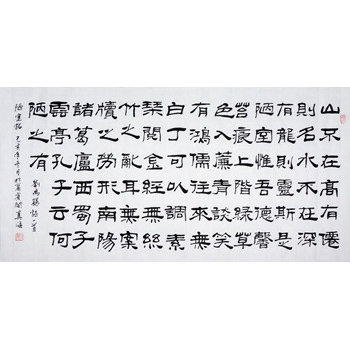 山不在高有僊
則名水不在深
有龍則靈斯是
陋室惟吾德馨
苔痕上階綠草
色入簾青談笑
有鴻儒往來無
白丁可以調素
琴閱金經無絲
竹之亂耳無案
牘之勞形南陽
諸葛廬西蜀子
雲亭孔子云何
陋之有
劉禹錫詩一首
陋室銘